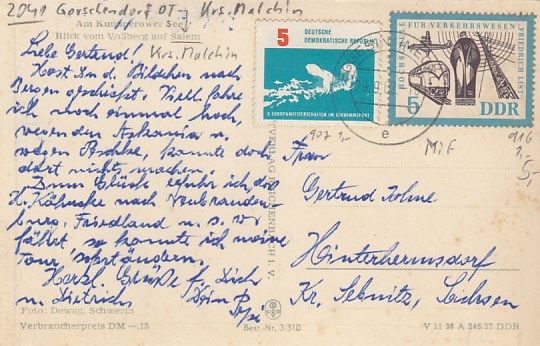 2041 Gorschendorf OT → Krs. Malchin
Am Kummerower See
Blick vom Voßberg auf Salem
Krs. Malchin
Liebe Gertrud!
Horst Dir d. Bildchen nach
Bergen geschickt. Viell. fahre
ich noch einmal hoch,
wegen der Askania u.
wegen Raschke, konnte doch
dort nichts machen.
Zum Glück erfuhr ich, daß
H. nach Neubranden-
burg, Friedland u. s. w.
fährt, so konnte ich meine
Tour
Herzl. Grüße f. Dich
u. Dietrich Dein
Foto: Dewag, Schwerin
Verbraucherpreis DM —,15
Best.-Nr. 3/310
VERLAG REICHENBACH I. V.
5
DEUTSCHE
DEMOKRATISCHE REPUBLIK
X. EUROPAMEISTERSCHAFTEN IM SCHWIMMEN 1962
HOCHSCHULE FÜR VERKEHRSWESEN FRIEDRICH LIST
5
DDR
e
907 1,-
MiF
916
5,-
Frau
Gertrud
Hinterhermsdorf
Kr. Sebnitz, Sachsen
V 11 28 A 246/37 DDR